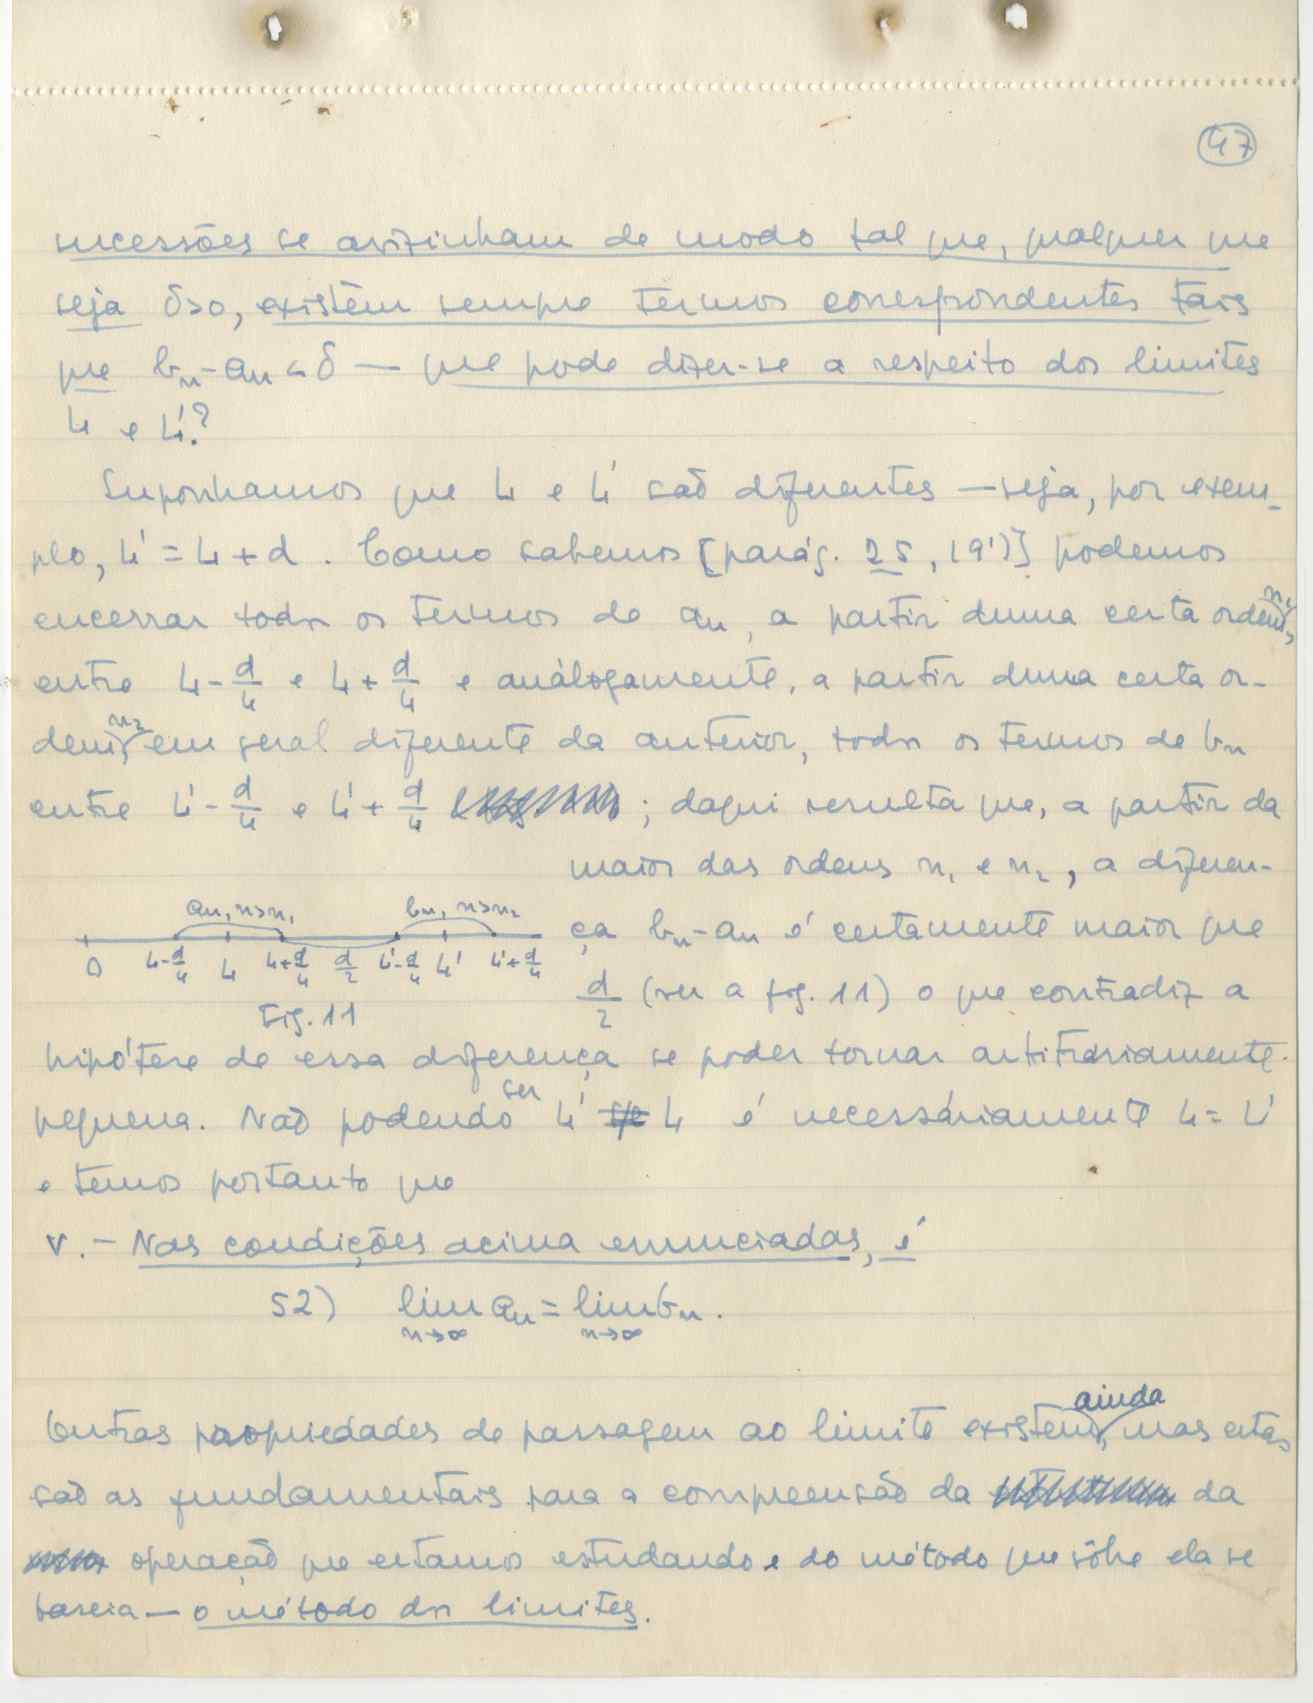 47
sucessões se avizinham de modo tal que, qualquer que
seja δ>0, existem sempre termos correspondentes tais
que bn-an<δ — que pode dizer-se a respeito dos limites
L e L'?
Suponhamos que L e L' são diferentes — seja, por exem-
plo, L' = L + d. Como sabemos [parág. 25, 19')] podemos
encerrar todos os termos de an, a partir duma certa ordem n1,
entre L - d/4 e L + d/4 e análogamente, a partir duma certa or-
dem n2, em geral diferente da anterior, todos os termos de bn
entre L' - d/4 e L' + d/4 ; daqui resulta que, a partir da
maior das ordens n1 e n2, a diferen-
ça bn-an é certamente maior que
d/2 (ver a fig. 11) o que contradiz a
an, n>n1 bn, n>n2
0 L-d/4 L L+d/4 d/2 L'-d/4 L' L'+d/4
Fig. 11
hipótese de essa diferença se poder tornar arbitràriamente
pequena. Não podendo ser L' ≠ L é necessáriamente L = L'
e temos portanto que
V. - Nas condições acima enunciadas, é
52) lim an = lim bn.
n→∞ n→∞
Outras propriedades de passagem ao limite existem ainda, mas estas
são as fundamentais para a compreensão da da
operação que estamos estudando e do método que sôbre ela se
baseia — o método dos limites.